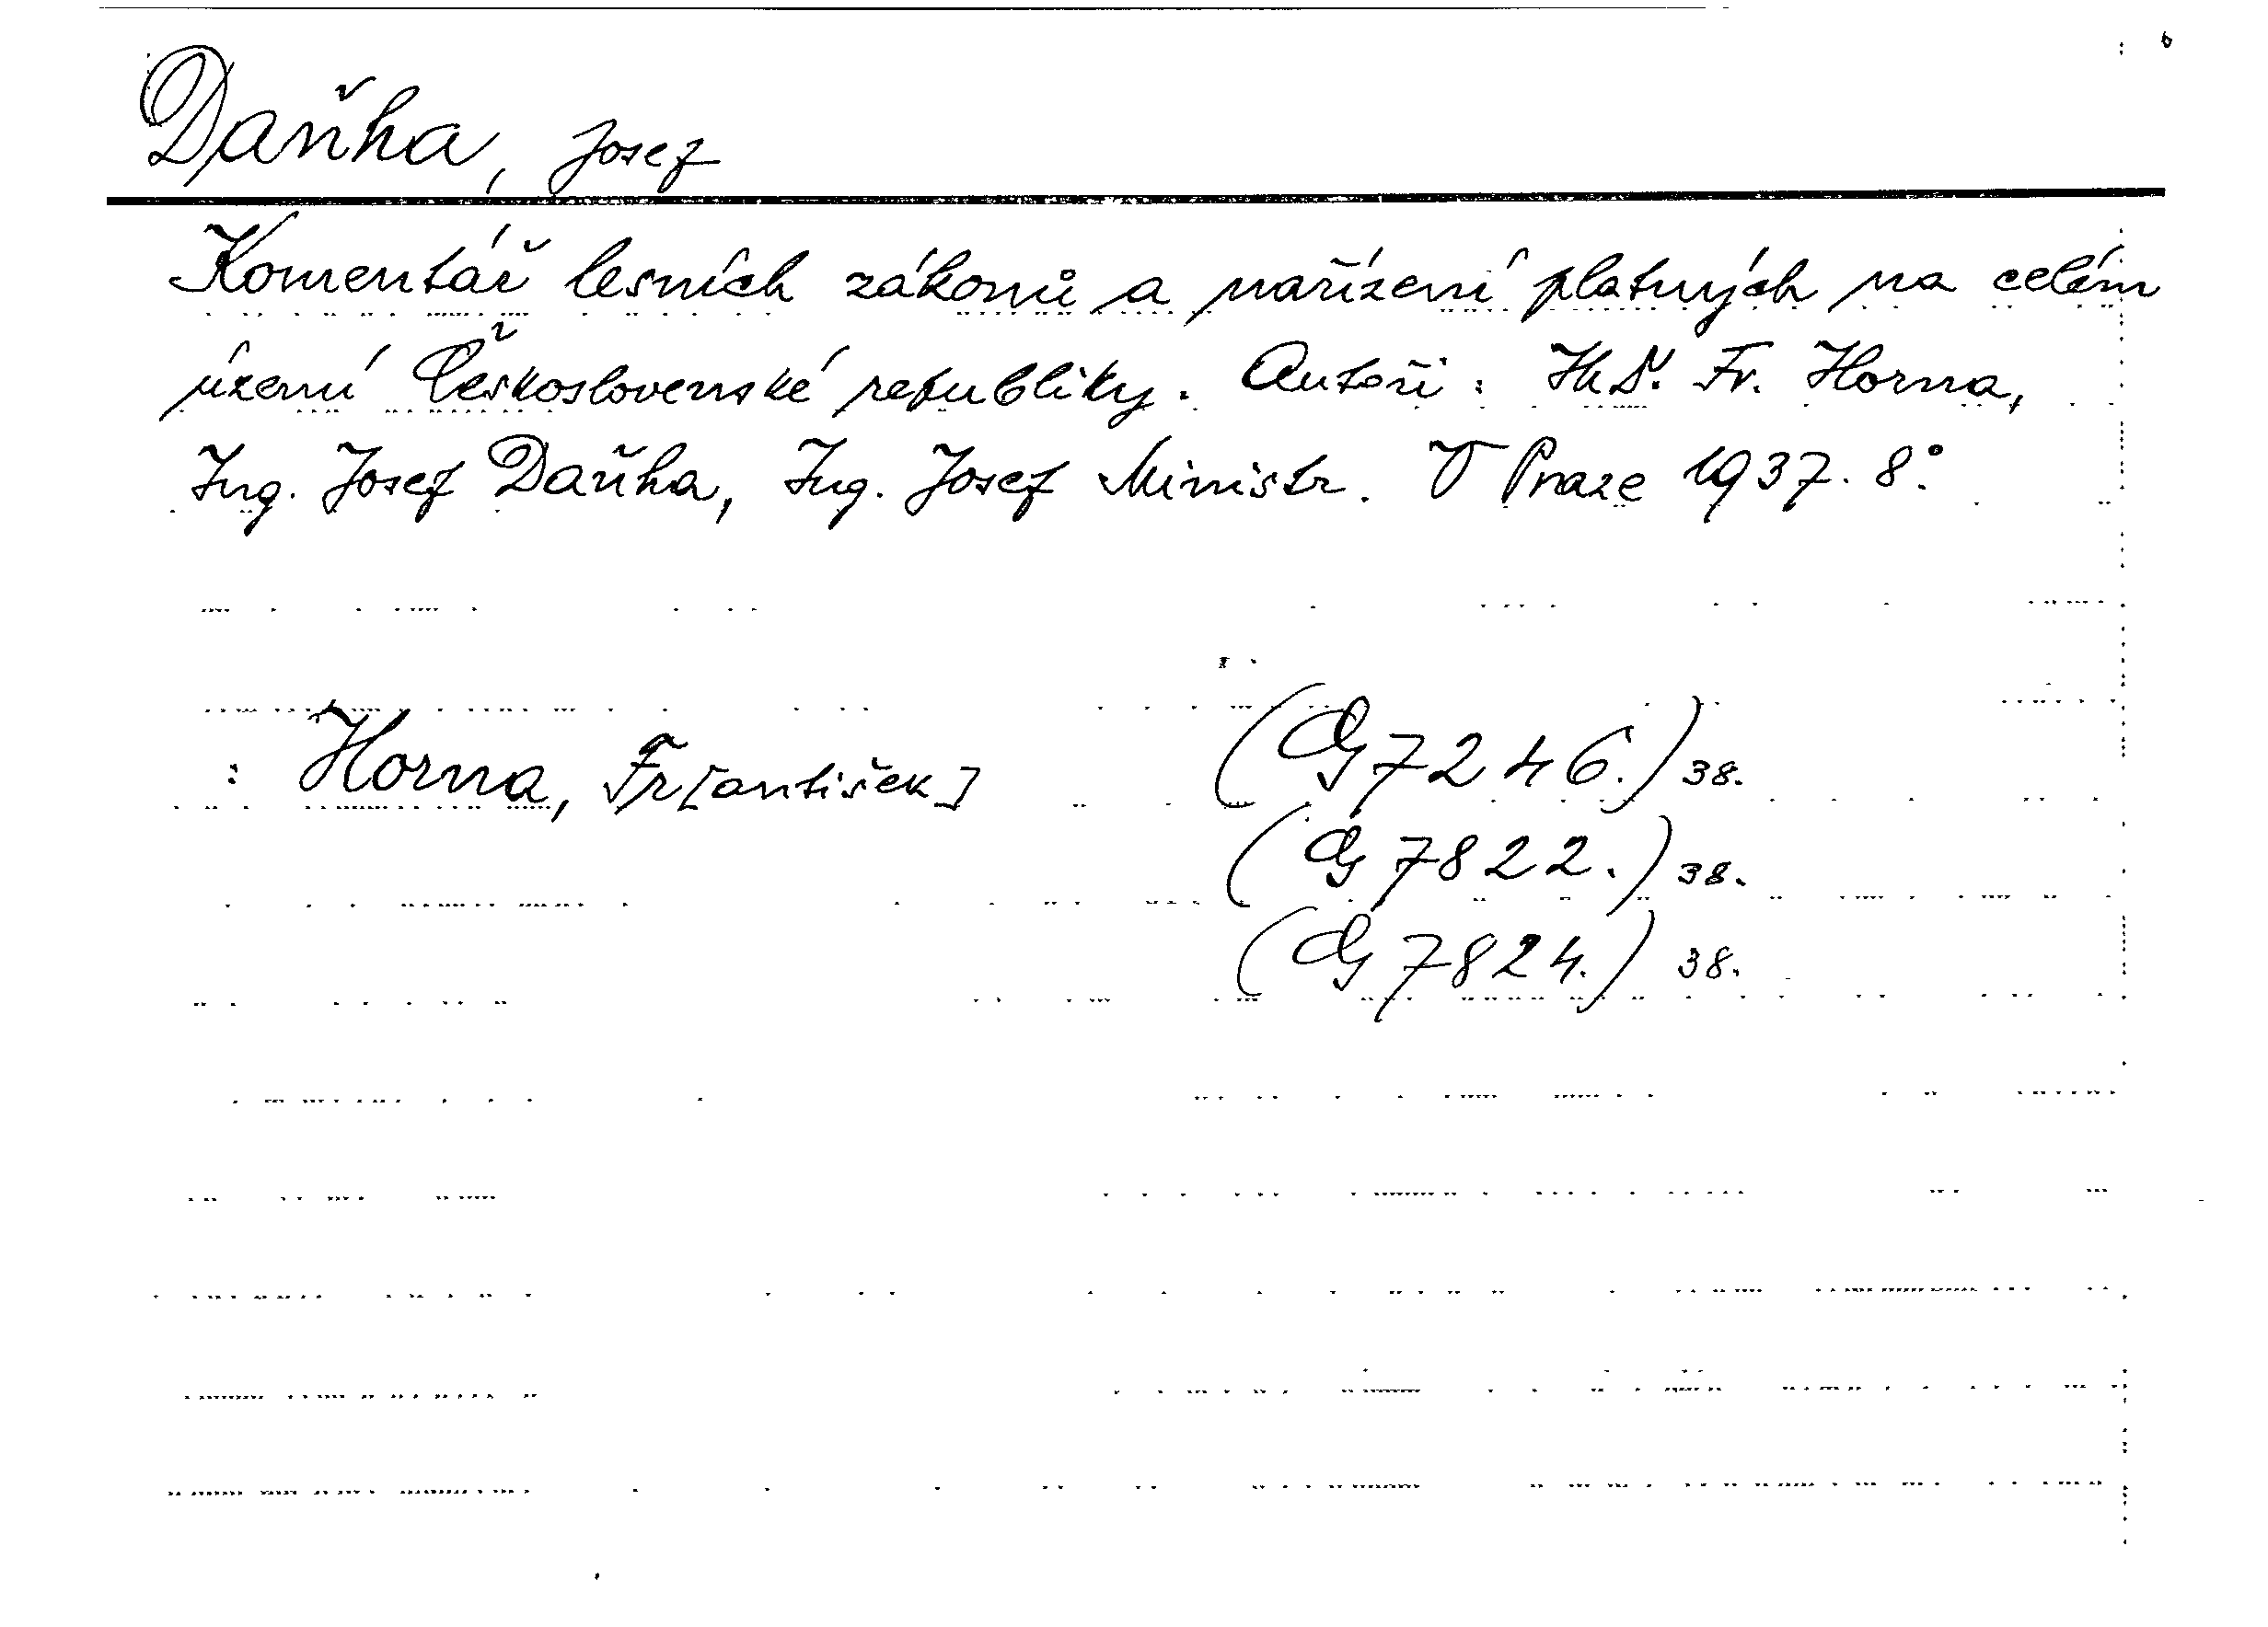 Daňha, Josef
Komentář lesních zákonů a nařízení platných na celém
území Československé republiky. Autoři: Fr. Horna,
Ing. Josef Daňha, Ing. Josef Ministr. V Praze 1937. 8°.
: Horna, Fr[antišek] (G 7246.) 38.
(G 7822.) 38.
(G 7824.) 38.